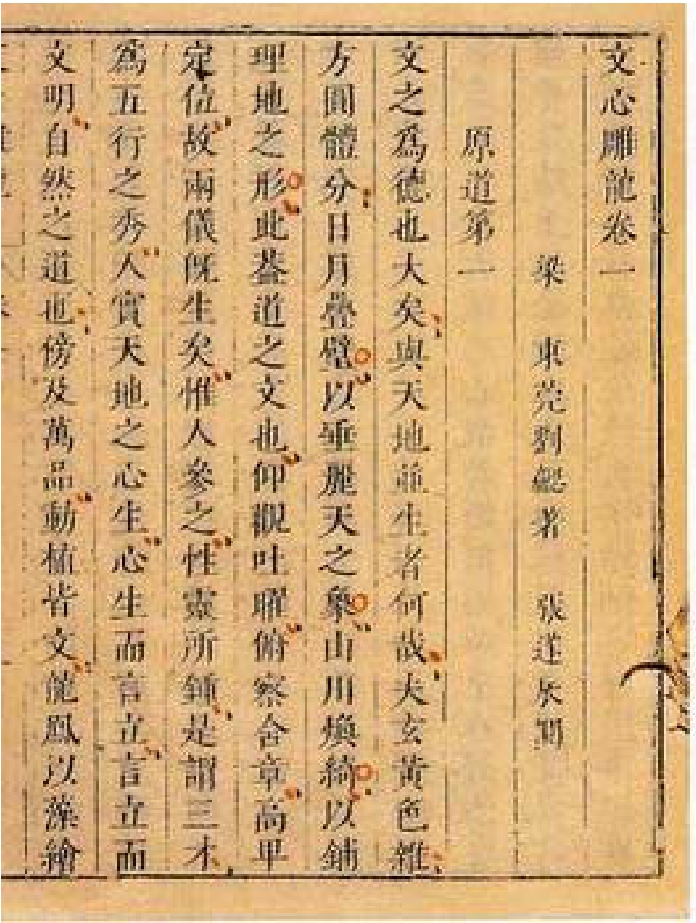 文心雕龍卷一
梁　東莞劉勰著　張遂辰閱
原道第一
文之爲德也大矣與天地並生者何哉夫玄黃色雜
方圓體分日月疊璧以垂麗天之象山川煥綺以鋪
理地之形此葢道之文也仰觀吐曜俯察含章高卑
定位故兩儀旣生矣惟人參之性靈所鍾是謂三才
爲五行之秀人實天地之心生心生而言立言立而
文明自然之道也傍及萬品動植皆文龍鳳以藻繪